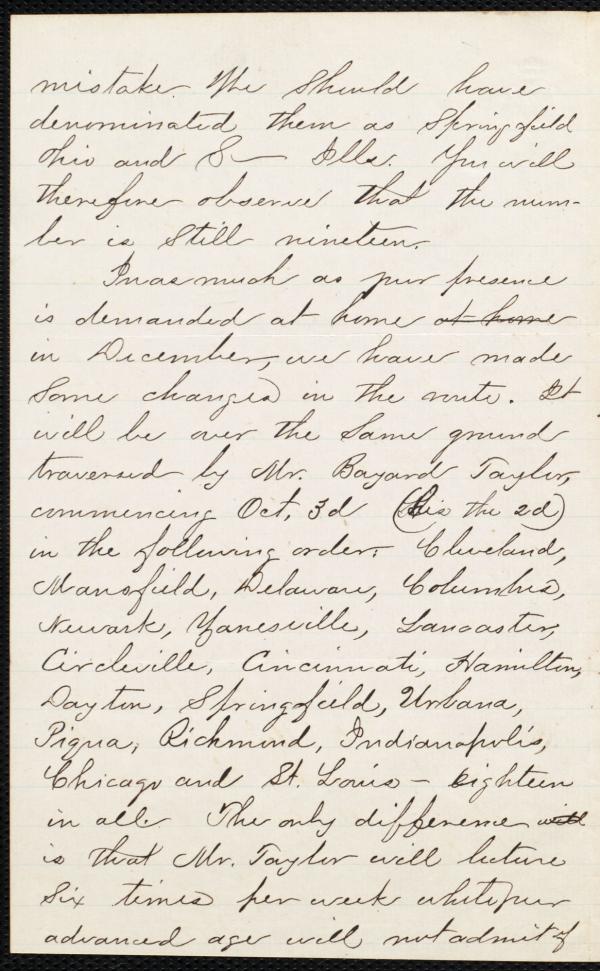 mistake. We should have
denominated them as Springfield
Ohio and S— Ills. You will
therefore observe that the num-
ber is still nineteen.
Inasmuch as your presence
is demanded at home at home
in December, we have made
some changes in the route. It
will be over the same ground
traversed by Mr. Bayard Taylor,
commencing Oct, 3d (his the 2d)
in the following order: Cleveland,
Mansfield, Delaware, Columbus,
Newark, Zanesville, Lancaster,
Circleville, Cincinnati, Hamilton,
Dayton, Springfield, Urbana,
Piqua, Richmond, Indianapolis,
Chicago and St. Louis – eighteen
in all. The only difference will
is that Mr. Taylor will lecture
six times per week while your
advanced age will not admit of